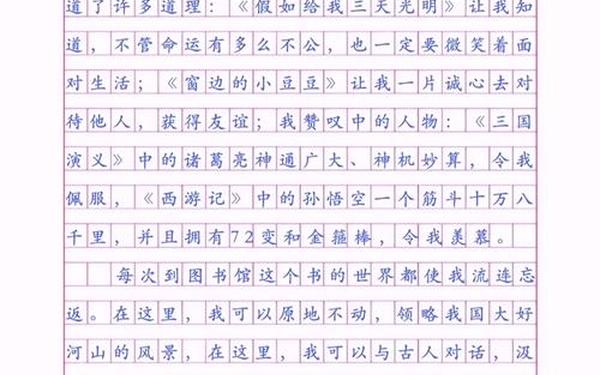 道了许多道理：《假如给我三天光明》让我知
道，不管命运有多么不公，也一定要微笑着面
对生活；《窗边的小豆豆》让我一片诚心去对
待他人，获得友谊；我赞叹中的人物：《三国
演义》中的诸葛亮神通广大、神机妙算，令我
佩服，《西游记》中的孙悟空一个筋斗十万八
千里，并且拥有72变和金箍棒，令我羡慕。
每次到图书馆这个书的世界都使我流连忘
返。在这里，我可以原地不动，领略我国大好
河山的风景，在这里，我可以与古人对话，汲